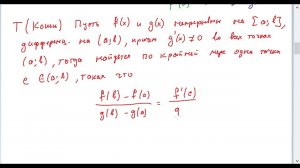 Т (Коши) Пусть f(x) и g(x) непрерывны на [a;b],
дифферен. на (a;b), причем g'(x) ≠ 0 во всех точках
(a;b), тогда найдется по крайней мере одна точка
c ∈ (a;b), такая что
f(b) - f(a) / g(b) - g(a) = f'(c) / g